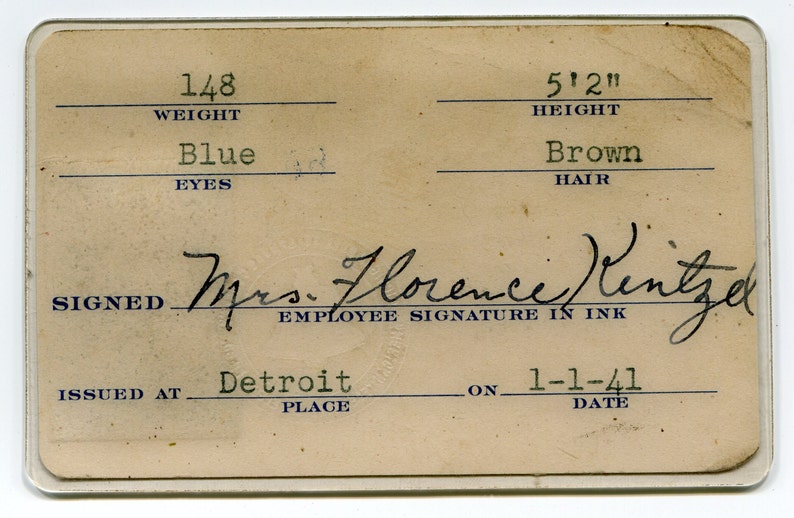 148 5'2"
WEIGHT HEIGHT
Blue Brown
EYES HAIR
SIGNED Mrs. Florence Kintzel
EMPLOYEE SIGNATURE IN INK
ISSUED AT Detroit ON 1-1-41
PLACE DATE